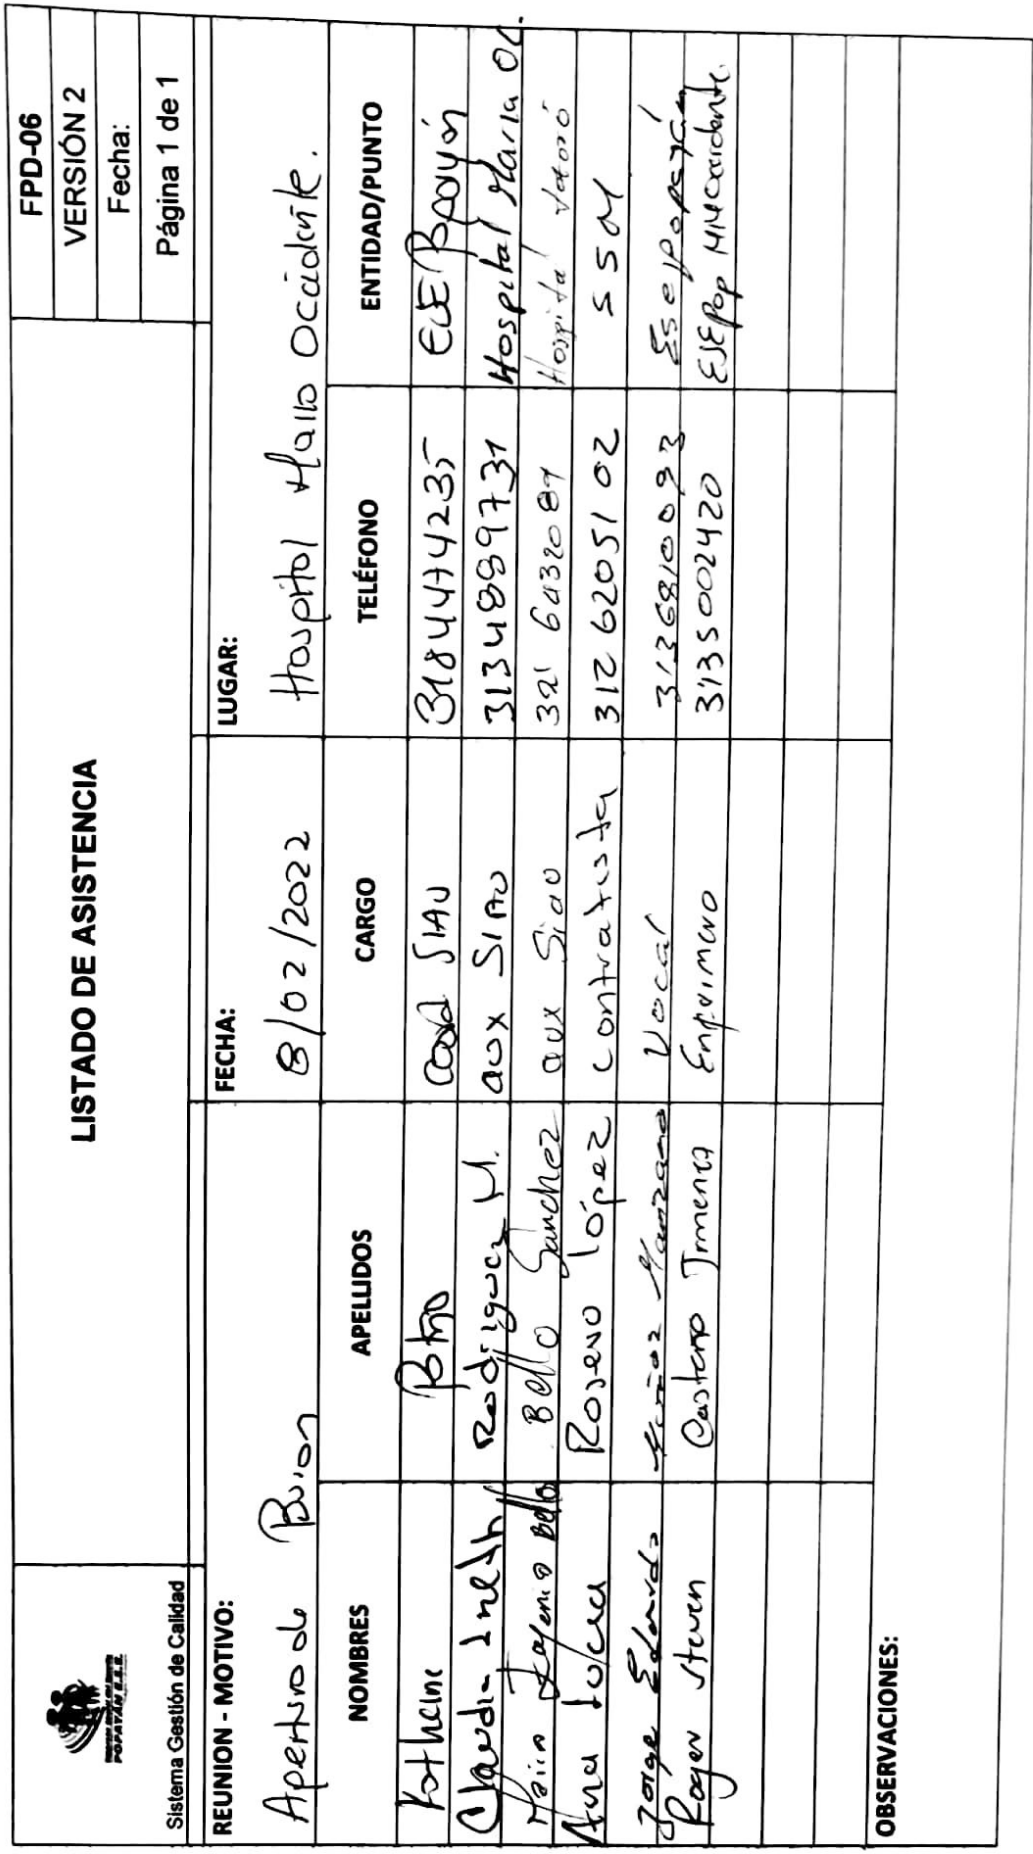 POPAYÁN E.S.E.
Sistema Gestión de Calidad
LISTADO DE ASISTENCIA
FPD-06
VERSIÓN 2
Fecha:
Página 1 de 1
REUNION - MOTIVO: FECHA: LUGAR:
Apertura de Buzon 8/02/2022 Hospital Mallo Occidente.
NOMBRES APELLIDOS CARGO TELÉFONO ENTIDAD/PUNTO
Katherine SIAU 3184474235
Claudia Rodriguez M. aux SIAU 3134889731 Hospital Maria Oc.
Bello Sanchez aux Siao 321 6432089 Hospital
Ana Rosero López contratista 312 6205102 SSM
Jorge Eduardo Muñoz Manzano Vocal 3136810093 Ese popayán
Roger Steven Castaño Jimenez 3135002420 ESE Pop MM Occidente.
OBSERVACIONES: